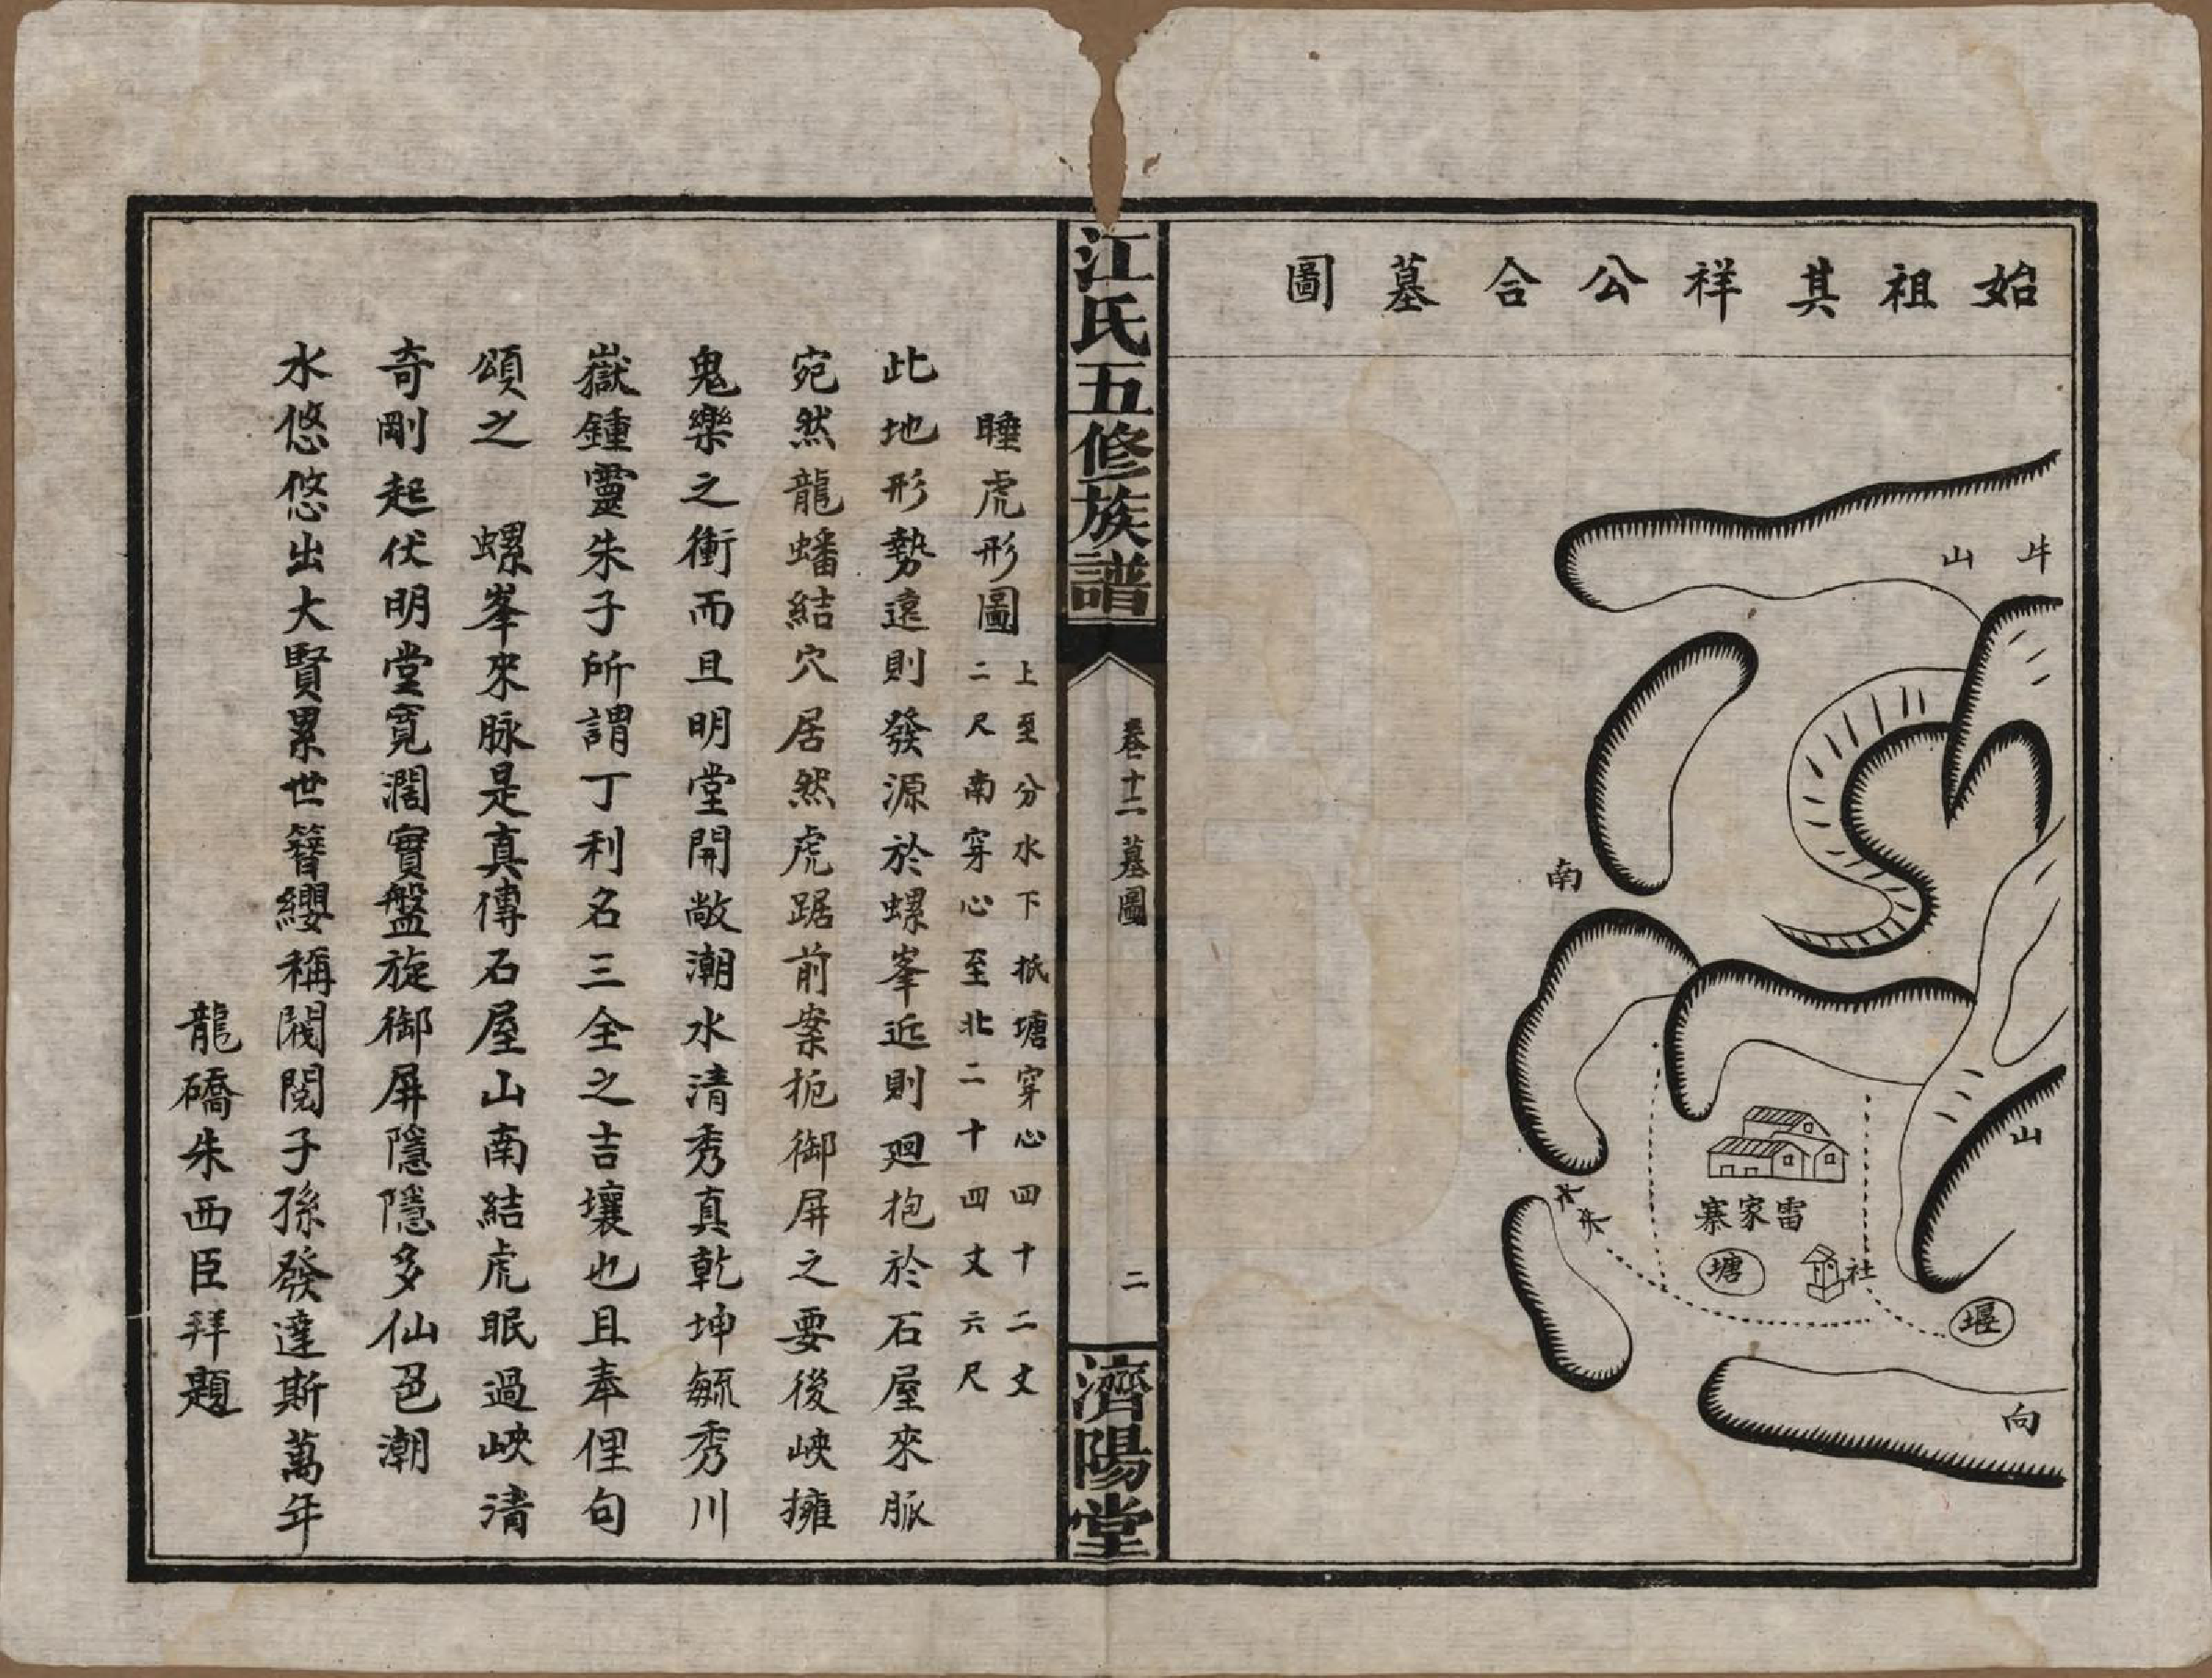 始祖其祥公合墓圖
山
南
山
雷家寨
塘
社
水口
堰
向
江氏五修族譜
卷十二 墓圖
二
濟陽堂
睡虎形圖
上至分水下抵塘穿心四十二丈
二尺南穿心至北二十四丈六尺
此地形勢遠則發源於螺峯近則廻抱於石屋來脈
宛然龍蟠結穴居然虎踞前案扼御屏之要後峽擁
鬼樂之衝而且明堂開敞潮水清秀真乾坤毓秀川
嶽鍾靈朱子所謂丁利名三全之吉壤也且奉俚句
頌之 螺峯來脉是真傳石屋山南結虎眠過峽清
奇剛起伏明堂寬濶實盤旋御屏隱隱多仙邑潮
水悠悠出大賢累世簪纓稱閥閱子孫發達斯萬年
龍礄朱西臣拜題